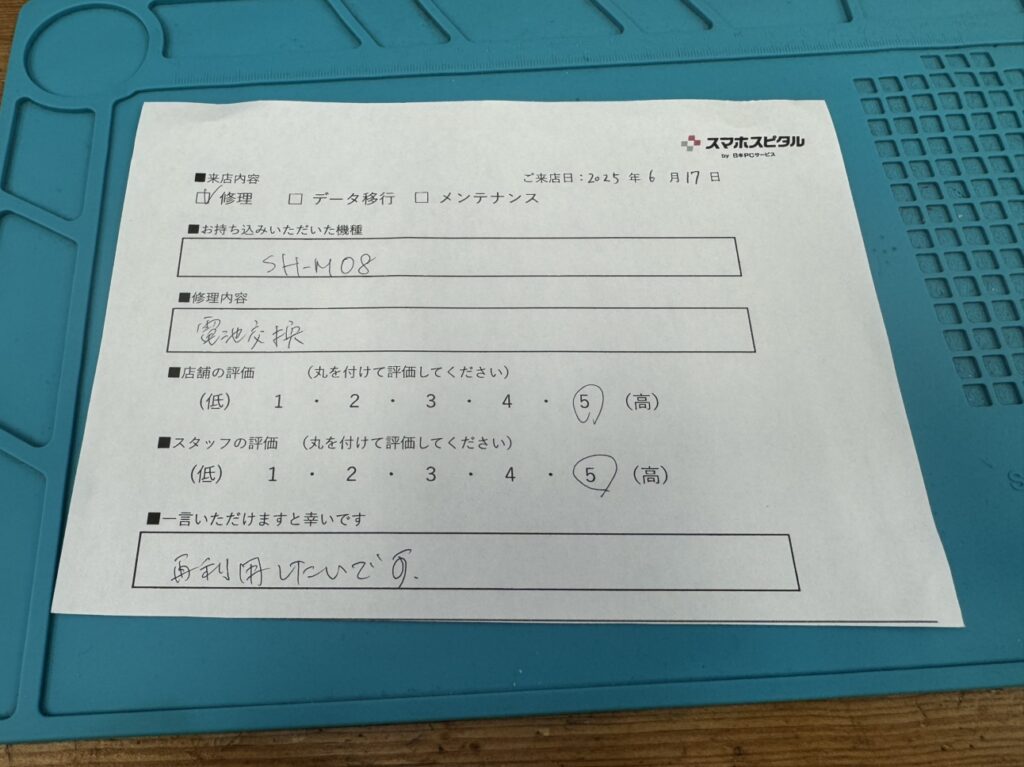 スマホスピタル
by 日本PCサービス
■来店内容
ご来店日：2025 年 6 月 17 日
☑ 修理 □ データ移行 □ メンテナンス
■お持ち込みいただいた機種
SH-M08
■修理内容
電池交換
■店舗の評価 （丸を付けて評価してください）
（低） 1 ・ 2 ・ 3 ・ 4 ・ 5 （高）
■スタッフの評価 （丸を付けて評価してください）
（低） 1 ・ 2 ・ 3 ・ 4 ・ 5 （高）
■一言いただけますと幸いです
再利用したいです.